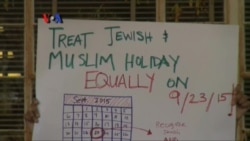 VOA
TREAT JEWISH &
MUSLIM HOLIDAY
EQUALLY ON
9/23/15
Sep. 2015